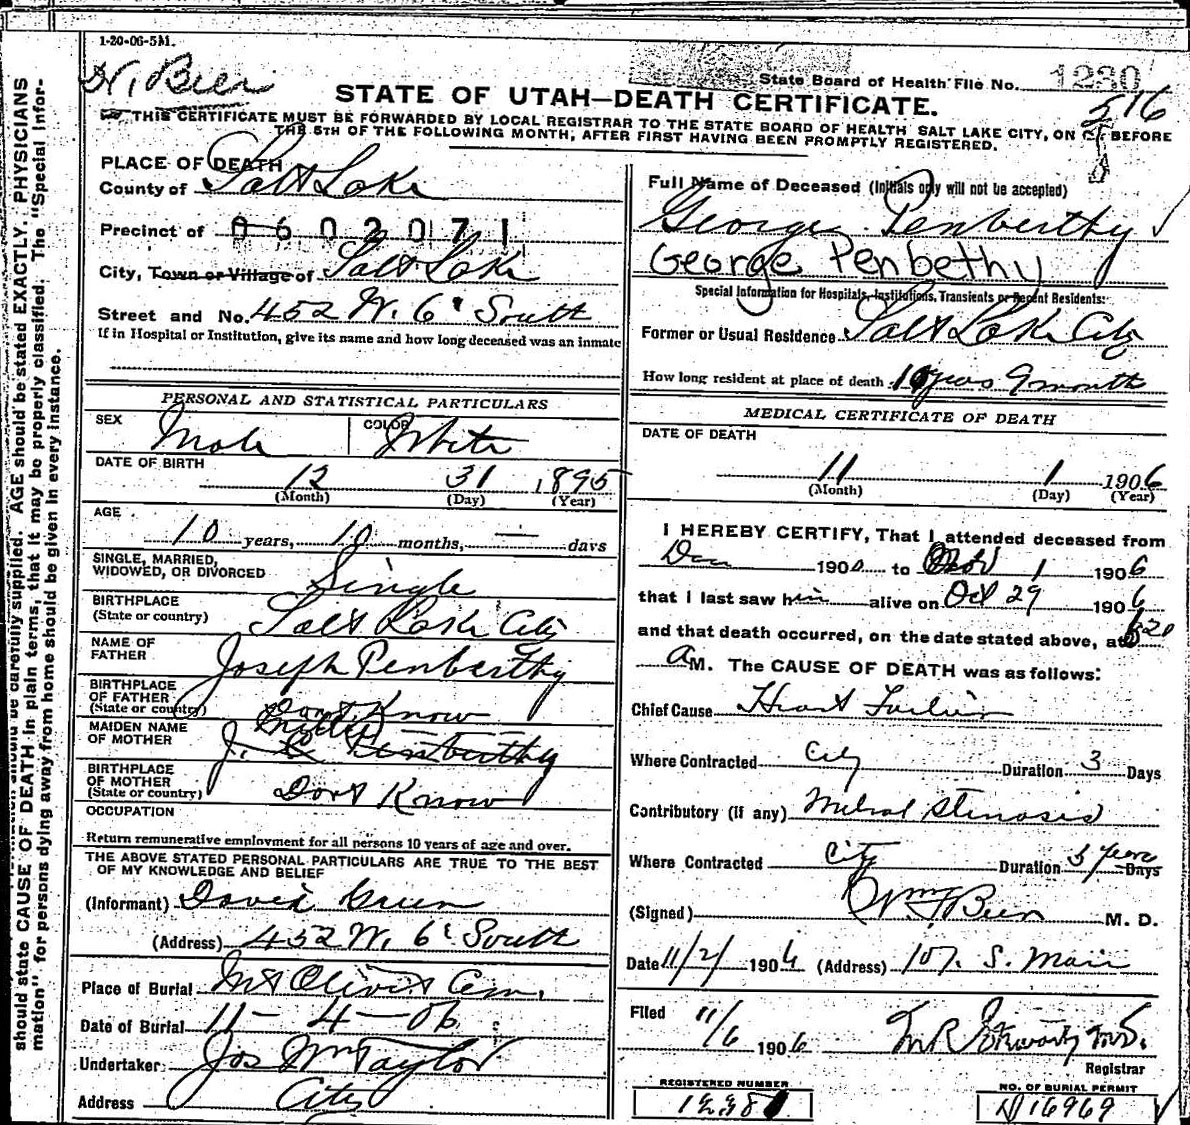 1-20-06-5M.
State Board of Health File No. 1230
516
STATE OF UTAH—DEATH CERTIFICATE.
THIS CERTIFICATE MUST BE FORWARDED BY LOCAL REGISTRAR TO THE STATE BOARD OF HEALTH SALT LAKE CITY, ON OR BEFORE
THE 5TH OF THE FOLLOWING MONTH, AFTER FIRST HAVING BEEN PROMPTLY REGISTERED.
PLACE OF DEATH
County of Salt Lake
Precinct of 0602071
City, Town or Village of Salt Lake
Street and No. 452 W. 6' South
If in Hospital or Institution, give its name and how long deceased was an inmate
Full Name of Deceased (Initials only will not be accepted)
George Penberthy
George Penbethy
Special Information for Hospitals, Institutions, Transients or Recent Residents:
Former or Usual Residence Salt Lake City
How long resident at place of death 10 years 9 month
PERSONAL AND STATISTICAL PARTICULARS
SEX Male COLOR White
DATE OF BIRTH 12 31 1895
(Month) (Day) (Year)
AGE
10 years, 10 months, — days
SINGLE, MARRIED,
WIDOWED, OR DIVORCED Single
BIRTHPLACE
(State or country) Salt Lake City
NAME OF
FATHER Joseph Penberthy
BIRTHPLACE
OF FATHER
(State or country) Dont Know
MAIDEN NAME
OF MOTHER J. Penberthy
BIRTHPLACE
OF MOTHER
(State or country) Dont Know
OCCUPATION
Return remunerative employment for all persons 10 years of age and over.
THE ABOVE STATED PERSONAL PARTICULARS ARE TRUE TO THE BEST
OF MY KNOWLEDGE AND BELIEF
(Informant) David
(Address) 452 W. 6' South
Place of Burial Mt Olivet Cem.
Date of Burial 11-4-06
Undertaker Jos Wm Taylor
Address City
MEDICAL CERTIFICATE OF DEATH
DATE OF DEATH
11 1 1906
(Month) (Day) (Year)
I HEREBY CERTIFY, That I attended deceased from
190 to Nov 1 1906
that I last saw him alive on Oct 29 1906
and that death occurred, on the date stated above, at 820
AM. The CAUSE OF DEATH was as follows:
Chief Cause Heart Failure
Where Contracted City Duration 3 Days
Contributory (if any) Mitral Stenosis
Where Contracted City Duration 5 years Days
(Signed) Wm F Beer M. D.
Date 11/2/ 1906 (Address) 107. S. Main
Filed 11/6 1906
Registrar
REGISTERED NUMBER
NO. OF BURIAL PERMIT
16969
should be carefully supplied. AGE should be stated EXACTLY. PHYSICIANS
should state CAUSE OF DEATH in plain terms, that it may be properly classified. The "Special Infor-
mation" for persons dying away from home should be given in every instance.